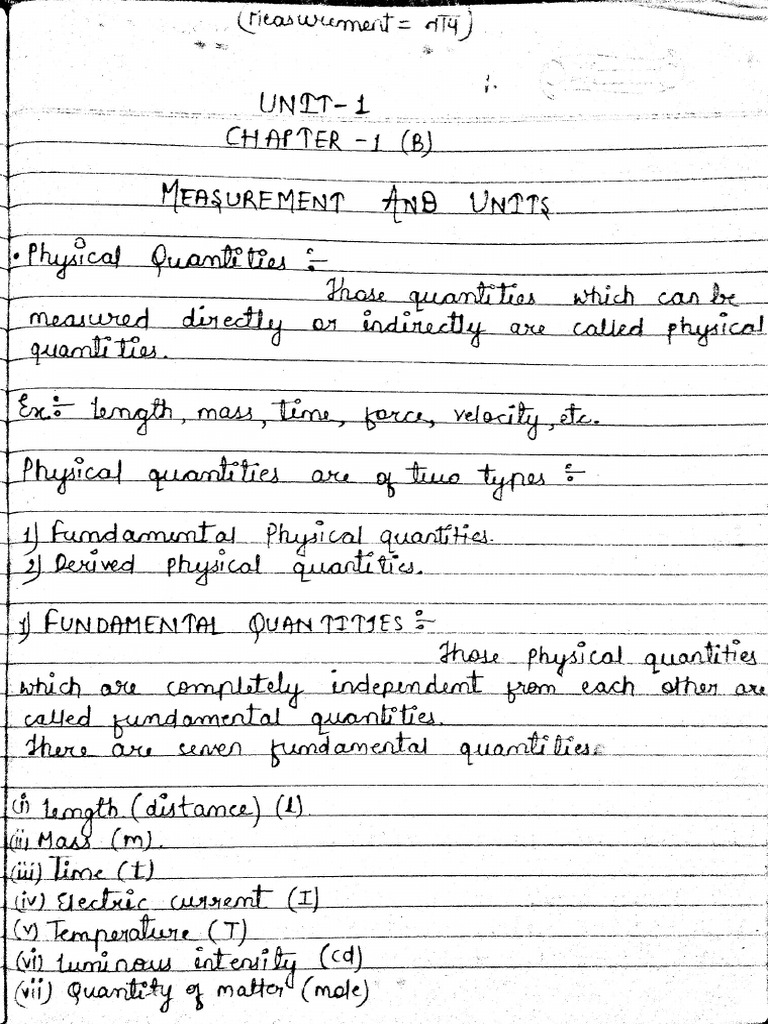 (Measurement = नाप)
UNIT-1
CHAPTER -1 (B)
MEASUREMENT AND UNITS
• Physical Quantities :-
Those quantities which can be
measured directly or indirectly are called physical
quantities.
Ex:- length, mass, time, force, velocity, etc.
Physical quantities are of two types :-
1) Fundamental Physical quantities.
2) Derived physical quantities.
1) FUNDAMENTAL QUANTITIES :-
Those physical quantities
which are completely independent from each other are
called fundamental quantities.
There are seven fundamental quantities.
(i) Length (distance) (l)
(ii) Mass (m).
(iii) Time (t)
(iv) Electric current (I)
(v) Temperature (T)
(vi) Luminous intensity (cd)
(vii) Quantity of matter (mole)